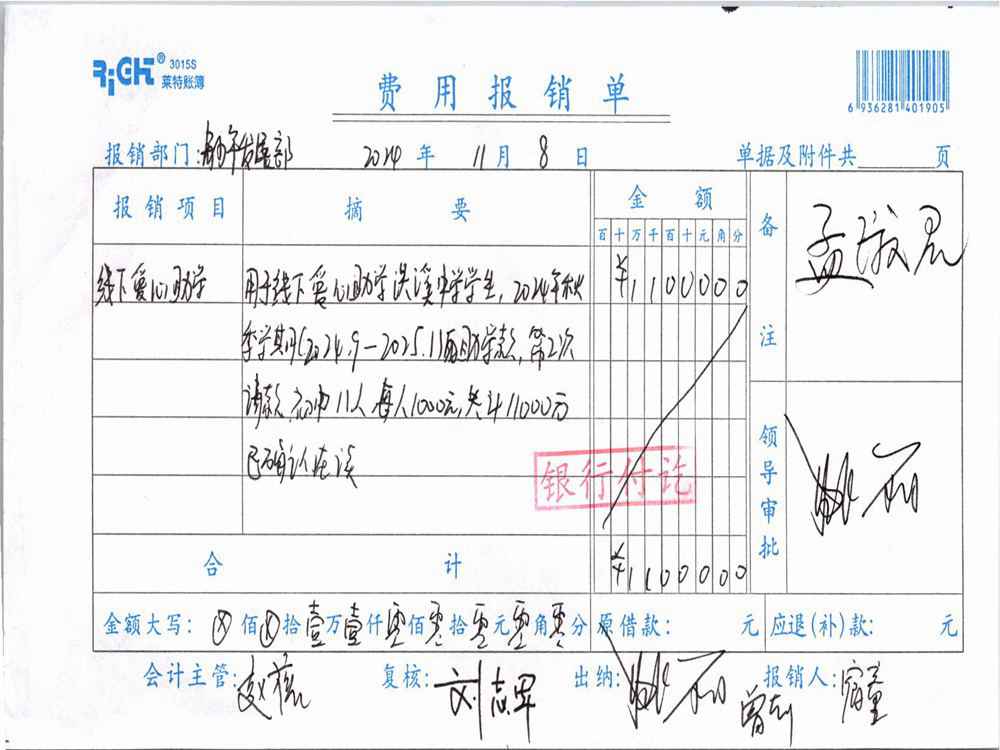 RiGHT® 3015S
莱特账簿
费用报销单
6 936281 401905
报销部门: 青少年发展部 2024 年 11 月 8 日 单据及附件共 页
报销项目 摘要 金额 备注
百 十 万 千 百 十 元 角 分
线下爱心助学 用于线下爱心助学洪溪中学学生,2024年秋 ¥1100000
季学期(2024.9-2025.1)助学款,第2次
请款,初中11人 每人1000元,共计11000元
已确认在读
银行付讫
领导审批
合计 ¥1100000
金额大写: ⊗ 佰 ⊗ 拾 壹 万 壹 仟 零 佰 零 拾 零 元 零 角 零 分 原借款: 元 应退(补)款: 元
会计主管: 复核: 刘志军 出纳: 报销人: